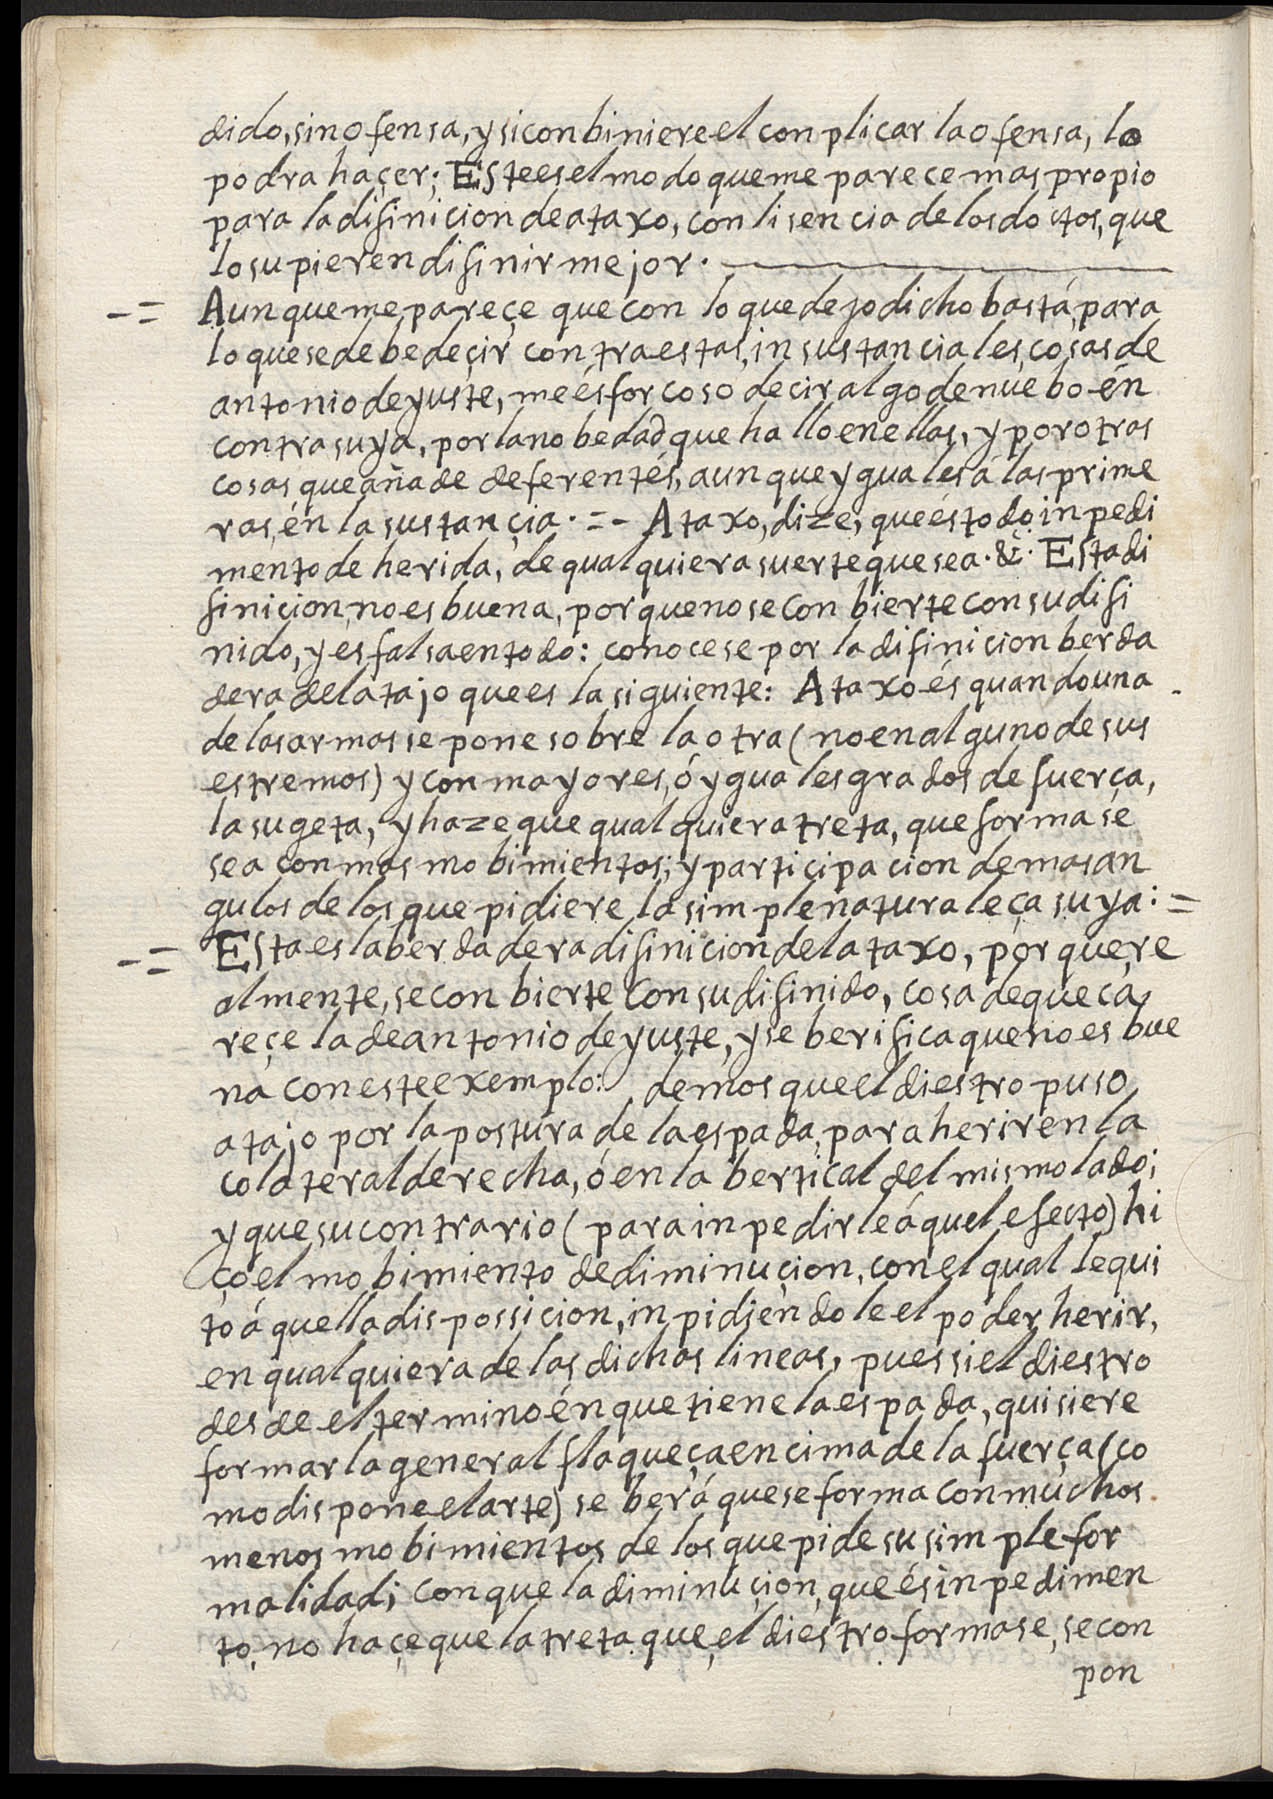 dido, sin ofensa, y si conbiniere el conplicar la ofensa, lo
podra haçer; Este es el modo que me parece mas propio
para la difinicion de ataxo, con lisencia de los doctos, que
lo supieren difinir mejor.
-= Aunque me pareçe que con lo que dejo dicho bastá, para
lo que se debe deçir contra estas, insustanciales cosas de
antonio de yuste, me és forcoso decir algo de nuebo én
contra suya, por la nobedad que hallo en ellas, y por otras
cosas que añade deferentés, aunque yguales á las prime
ras, én la sustançia. =- Ataxo, dize, que és todo inpedi
mento de herida, de qualquiera suerte que sea. &. Esta di
finicion, no es buena, porque no se conbierte con su difi
nido, y es falsa en todo: conocese por la difinicion berda
dera del atajo que es la siguiente: Ataxo és quando una
de las armas se pone sobre la otra (no en alguno de sus
estremos) y con mayores, ó yguales grados de fuerça,
la sugeta, y haze que qualquiera treta, que formasé
sea con mas mobimientos; y participacion de mas an
gulos de los que pidiere la simple naturaleça suya: =
-= Esta es la berdadera difinicion del ataxo, porque re
almente, se conbierte con su difinido, cosa de que ca
reçe la de antonio de yuste, y se berifica que no es bue
na con este exemplo: demos que el diestro puso
atajo por la postura de la espada, para herir en la
colateral derecha, ó en la bertical del mismo lado;
y que su contrario (para inpedirle áquel efecto) hi
ço el mobimiento de diminuçion, con el qual le qui
to áquella dispossicion, inpidiendole el poder herir,
en qualquiera de las dichas lineas, pues si el diestro
desde el termino én que tiene la espada, quisiere
formar la general flaqueça encima de la fuerça (co
mo dispone el arte) se berá que se forma con muchos
menos mobimientos de los que pide su simple for
malidad; con que la diminuçion, que és inpedimen
to, no haçe que la treta que el diestro formase, se con
pon